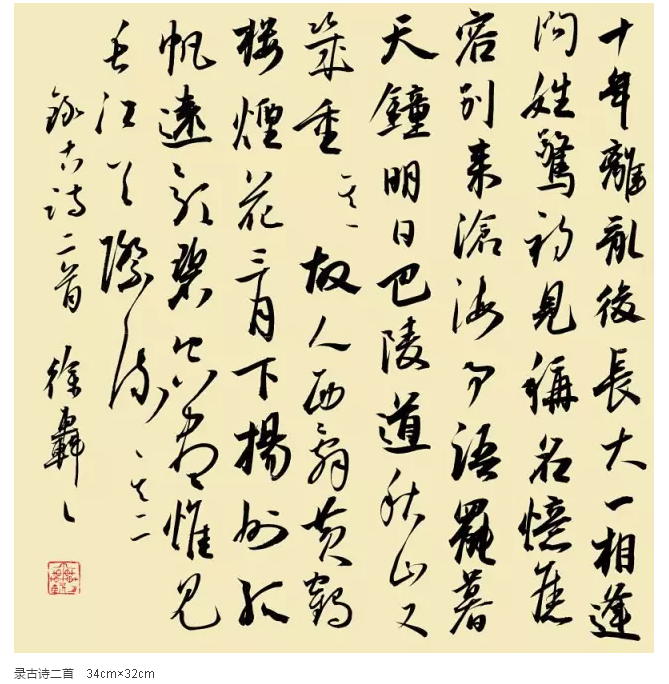 十年離亂後長大一相逢
问姓驚初見稱名憶舊
容别来滄海事語罷暮
天鐘明日巴陵道秋山又
幾重 其一 故人西辭黄鶴
楼煙花三月下揚州孤
帆遠影碧空盡惟見
長江天際流 其二
錄古詩二首 徐轟々
录古诗二首 34cm×32cm